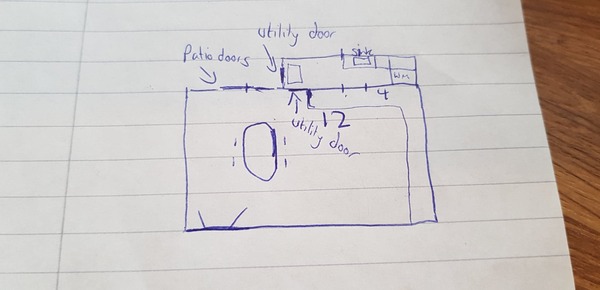 utility door
Patio doors
sink
WM
4
12
utility
door